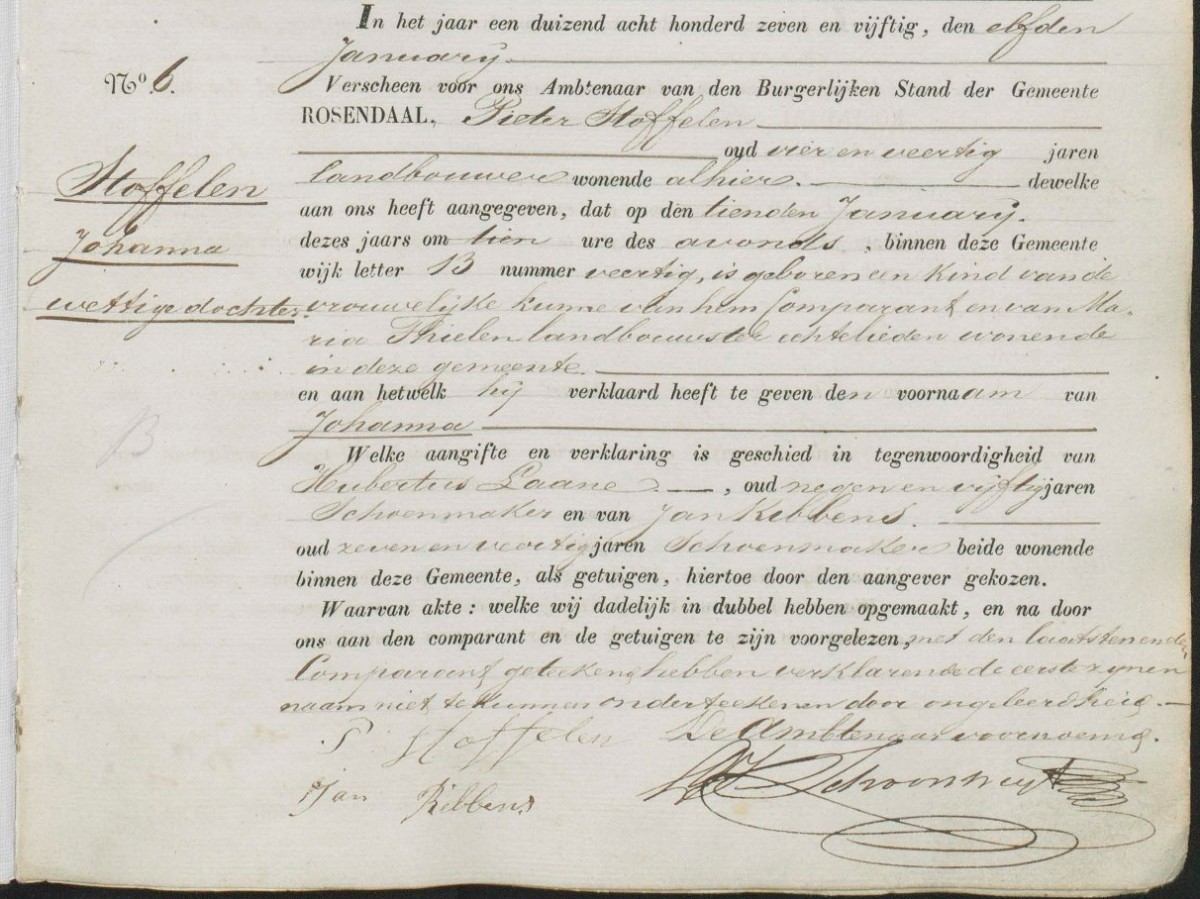 In het jaar een duizend acht honderd zeven en vijftig, den elfden
January.
No. 6.
Verscheen voor ons Ambtenaar van den Burgerlijken Stand der Gemeente
ROSENDAAL, Pieter Stoffelen
oud vier en veertig jaren
Stoffelen
landbouwer wonende alhier. dewelke
aan ons heeft aangegeven, dat op den tienden January.
Johanna
dezes jaars om tien ure des avonds, binnen deze Gemeente
wijk letter B nummer veertig, is geboren een kind van de
wettige dochter.
vrouwelijke kunne van hem Comparant en van Ma-
ria Thielen landbouwster echtelieden wonende
in deze gemeente.
en aan hetwelk hij verklaard heeft te geven den voornaam van
Johanna
B
Welke aangifte en verklaring is geschied in tegenwoordigheid van
Hubertus Laane, oud negen en vijftig jaren
Schoenmaker en van Jan Kibbens.
oud zeven en veertig jaren Schoenmaker beide wonende
binnen deze Gemeente, als getuigen, hiertoe door den aangever gekozen.
Waarvan akte: welke wij dadelijk in dubbel hebben opgemaakt, en na door
ons aan den comparant en de getuigen te zijn voorgelezen, met den laatsten en den
Comparant geteekend hebben verklarende de eerste zynen
naam niet te kunnen onderteekenen door ongeleerdheid.
P Stoffelen De Ambtenaar voornoemd.
Jan Kibbens